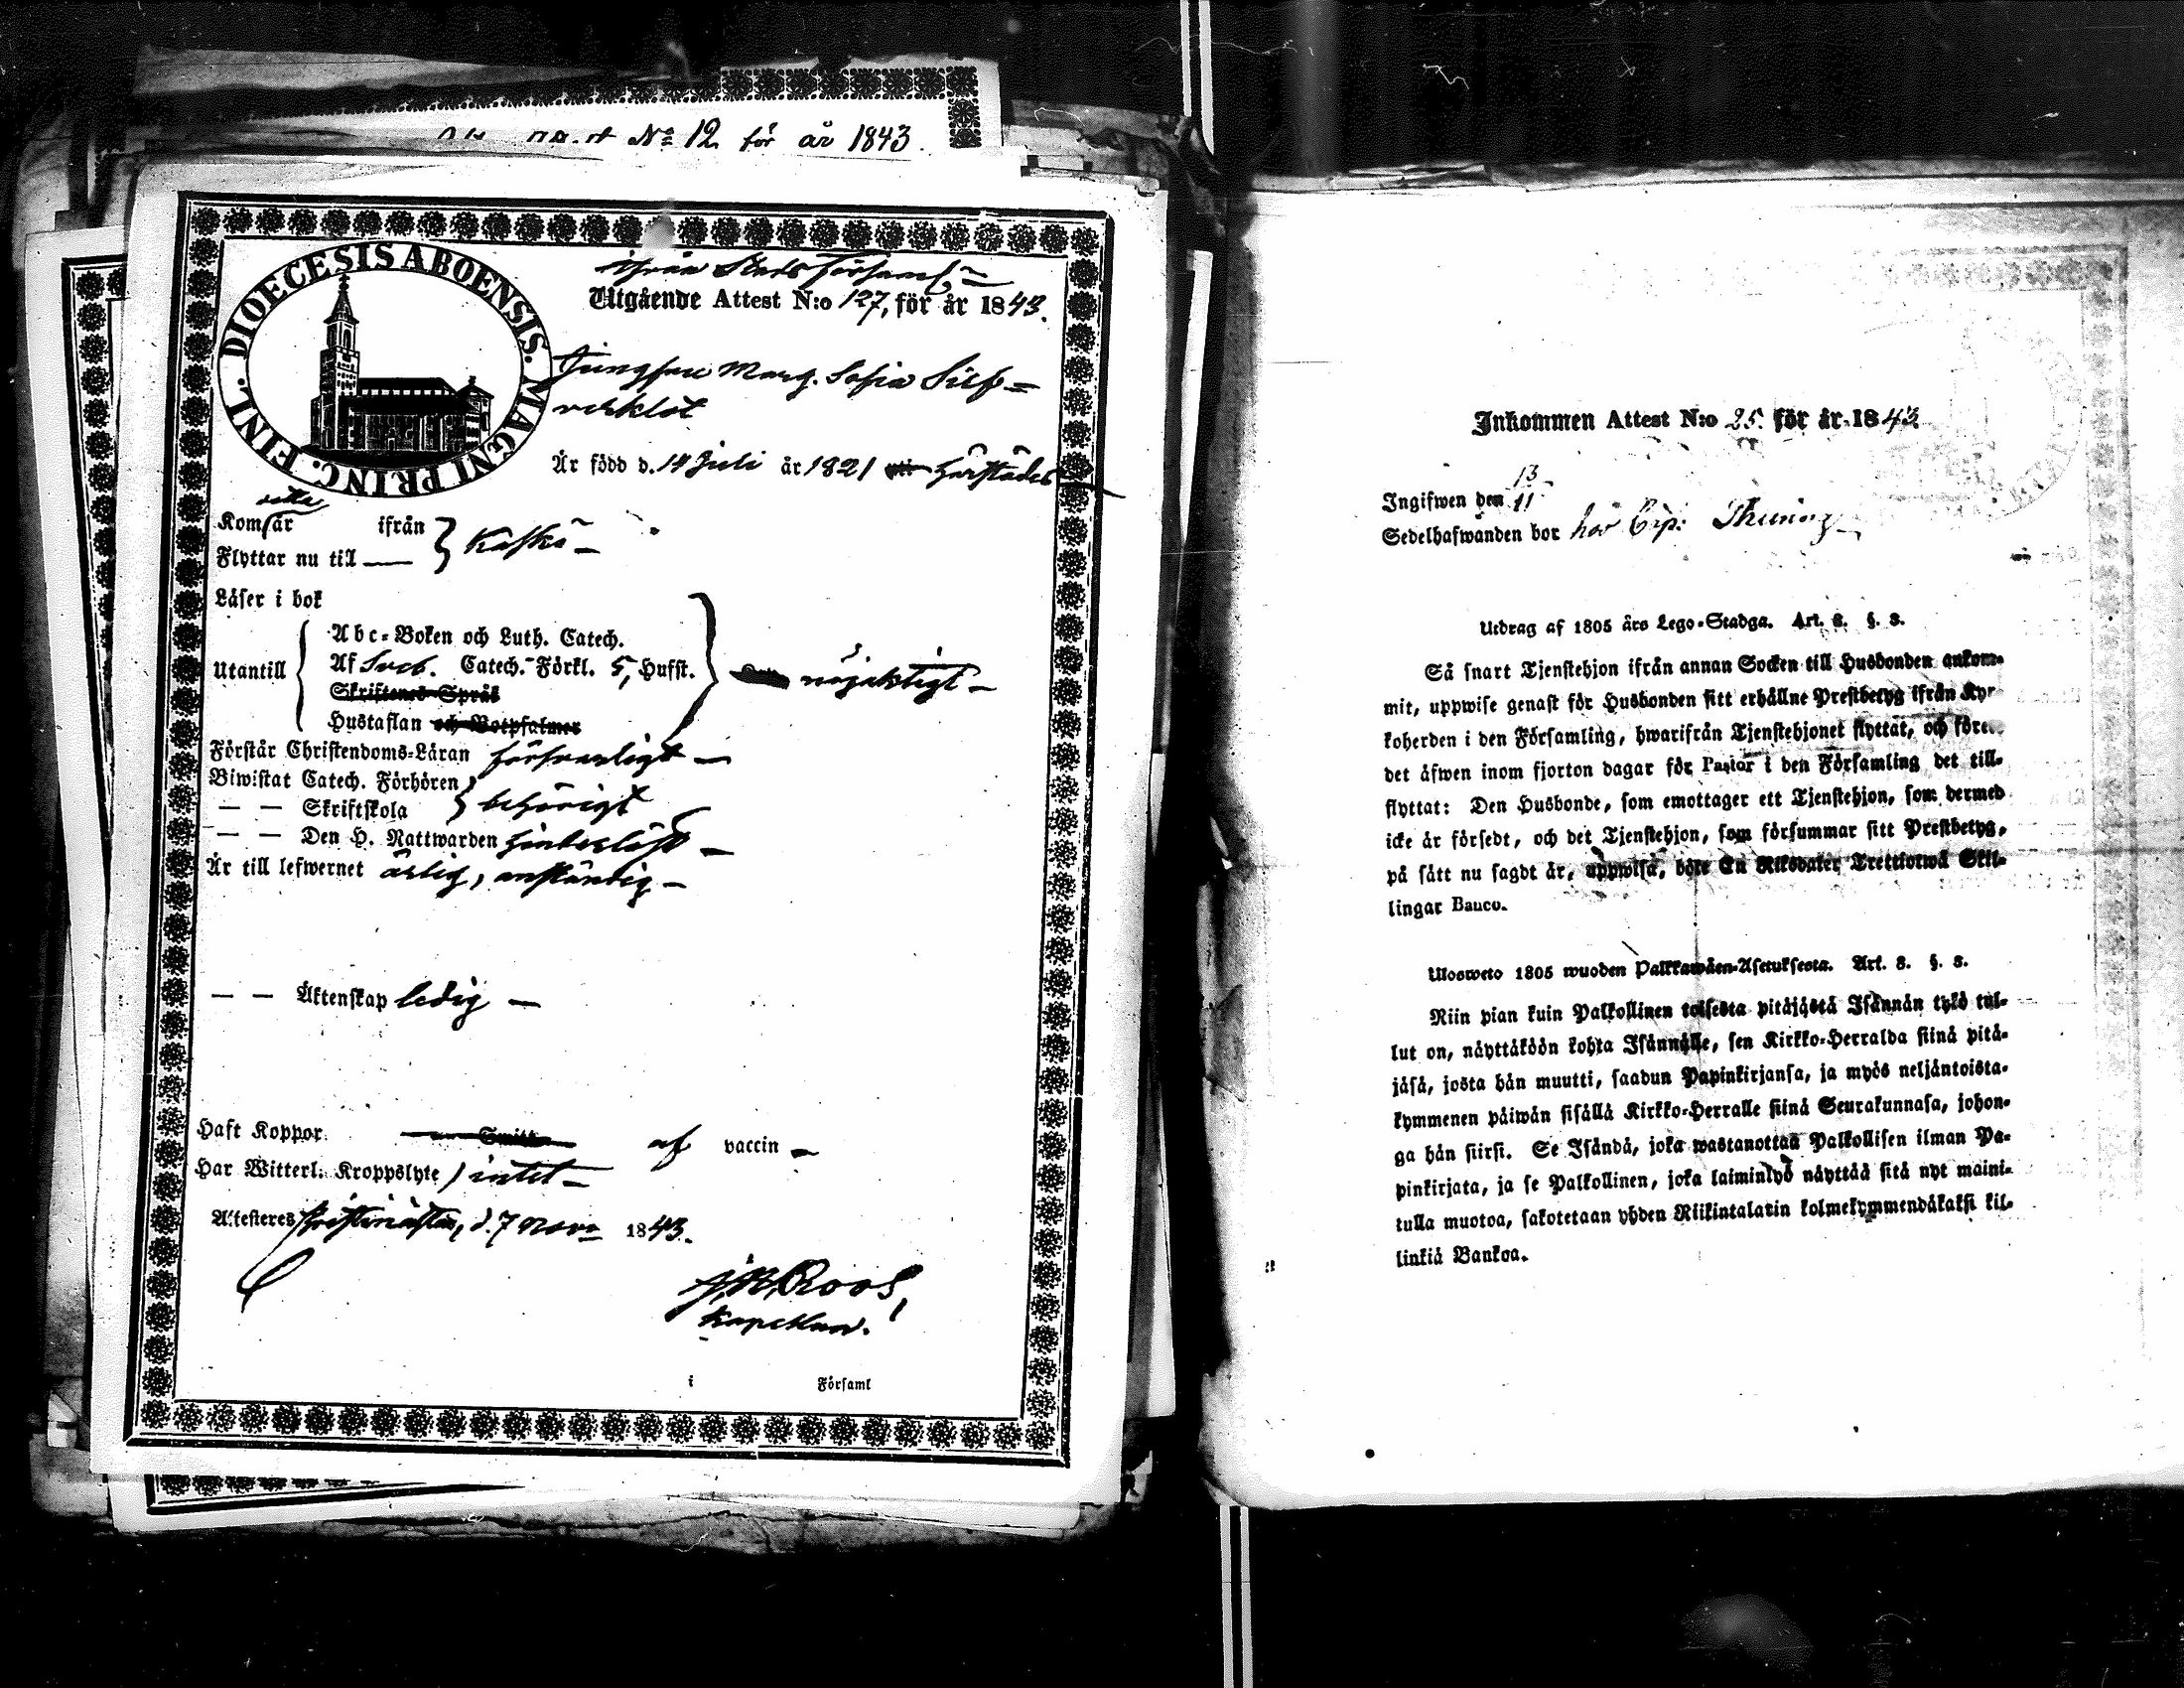 No 12 för år 1843.
DIOECESIS ABOENSIS. MAGNI PRINC. FINL.
ifrån Stads Församl.
Utgående Attest N:o 127, för år 1843.
Jungfru Marg. Sofia Silf-
verklot
Är född d. 14 Juli år 1821 härstädes
Kom år ifrån
Flyttar nu till — } Kaskö —
Läser i bok
Abc-Boken och Luth. Catech.
Utantill { Af Sveb. Catech. Förkl. 5, Hufst. } nöjaktigt —
Skriftenes Språk
Hustaflan och Botpsalmer
Förstår Christendoms-Läran försvarligt —
Biwistat Catech. Förhören
— — Skriftskola } behörigt
— — Den H. Nattwarden
Är till lefwernet ärlig, anständig —
— — Äktenskap ledig —
Haft Koppor af vaccin —
Har Witterl. Kroppslyte intet —
Attesteres Christinæstad, d. 7 Nov. 1843.
Roos,
Kapellan.
i Församl
Inkommen Attest N:o 25. för år 1843
Ingifwen den 13/11
Sedelhafwanden bor hos Thuring
Utdrag af 1805 års Lego-Stadga. Art. 8. §. 8.
Så snart Tjenstehjon ifrån annan Socken till Husbonden ankom-
mit, uppwise genast för Husbonden sitt erhållne Prestbetyg ifrån Kyr-
koherden i den Församling, hwarifrån Tjenstehjonet flyttat, och före
det äfwen inom fjorton dagar för Pastor i den Församling det till-
flyttat: Den Husbonde, som emottager ett Tjenstehjon, som dermed
icke är försedt, och det Tjenstehjon, som försummar sitt Prestbetyg,
på sätt nu sagdt är, uppwisa, böte En Riksdaler Trettiotwå Skil-
lingar Banco.
Ulosweto 1805 wuoden Palkkawäen-Asetuksesta. Art. 8. §. 8.
Niin pian kuin Palkollinen toisesta pitäjästä Isännän tykö tul-
lut on, näyttäköön kohta Isännälle, sen Kirkko-Herralda siinä pitä-
jäsä, josta hän muutti, saadun Papinkirjansa, ja myös neljäntoista-
kymmenen päiwän sisällä Kirkko-Herralle siinä Seurakunnasa, johon-
ga hän siirsi. Se Isändä, joka wastanottaa Palkollisen ilman Pa-
pinkirjata, ja se Palkollinen, joka laiminlyö näyttää sitä nyt maini-
tulla muotoa, sakotetaan yhden Riikintalarin kolmekymmendäkaksi kil-
linkiä Bankoa.